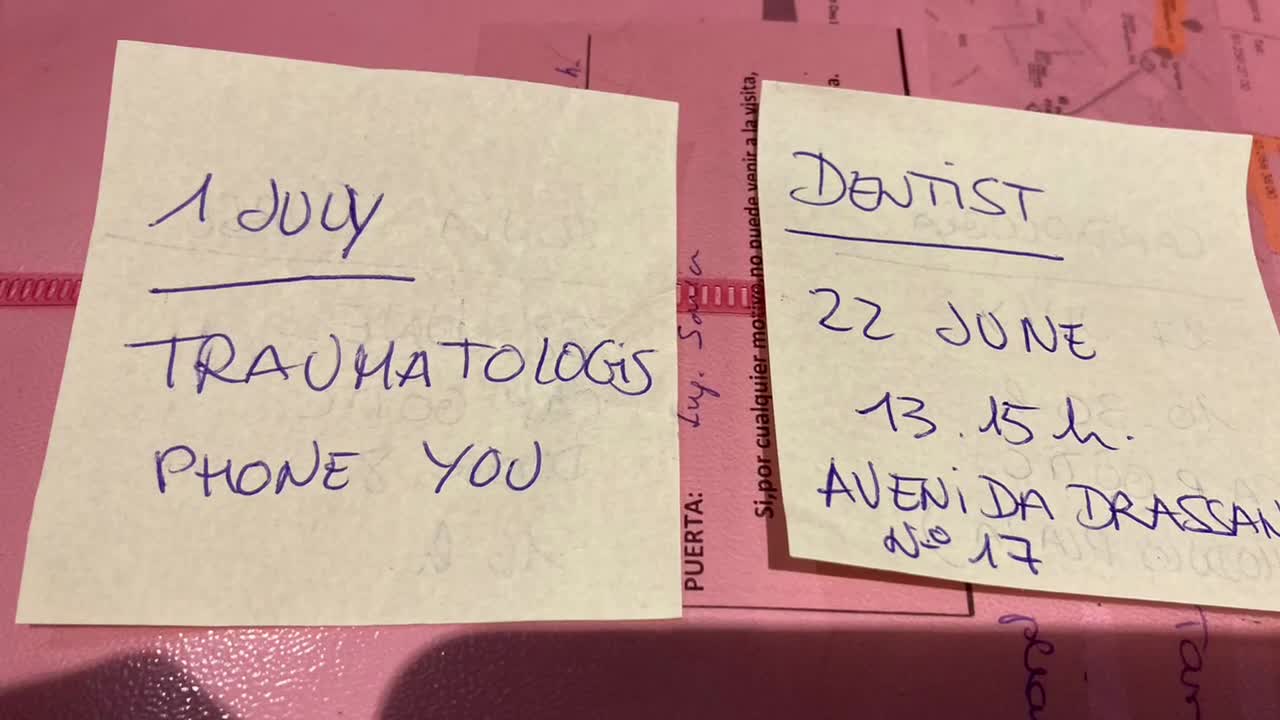 1 JULY
TRAUMATOLOGIS
PHONE YOU
DENTIST
22 JUNE
13.15 h.
AVENIDA DRASSAN
Nº 17
Si, por cualquier motivo no puede venir a la visita,
PUERTA: